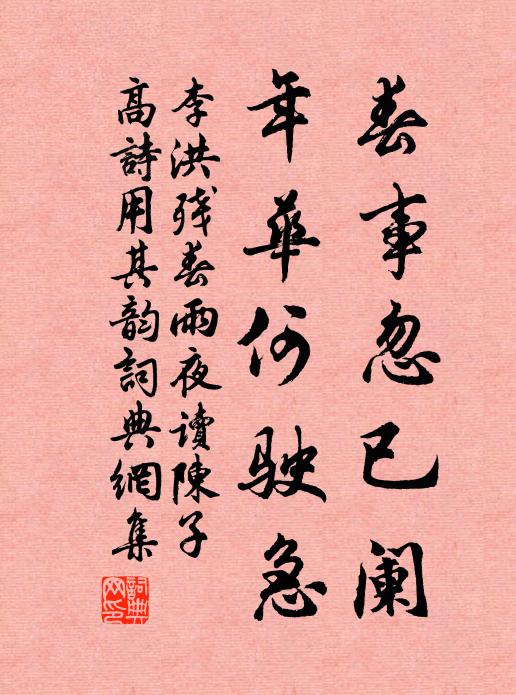 春事忽已阑
年華何駛急
李洪残春雨夜讀陳子
高詩用其韵詞典網集
詞典网印